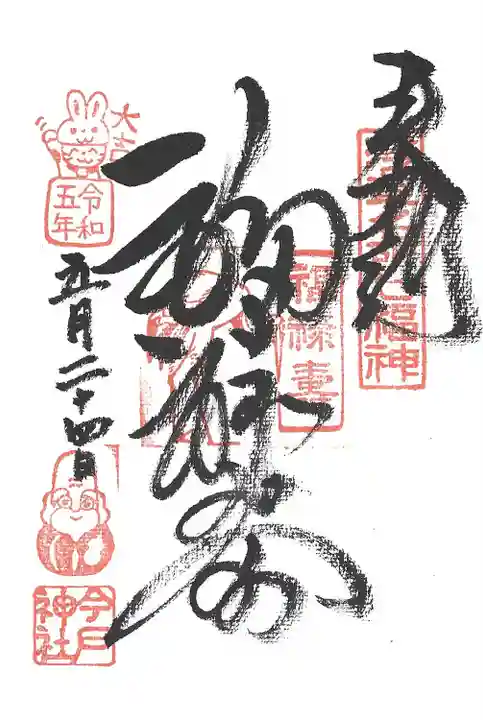 奉拝
七福神
福禄寿
福禄壽
大吉
令和
五年
五月二十四日
今戸
神社